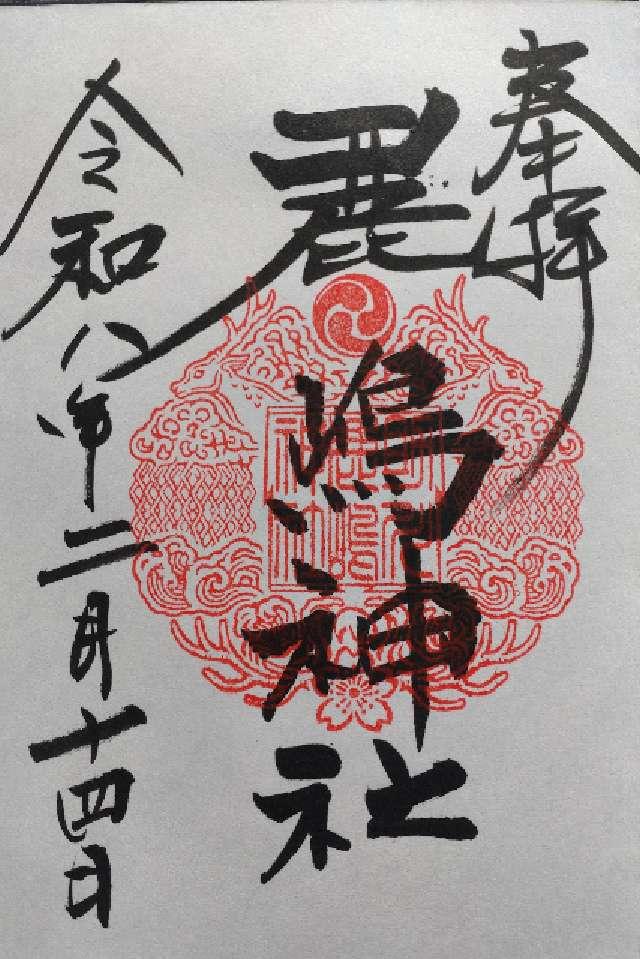 奉拝
鹿嶋神社
令和八年二月十四日